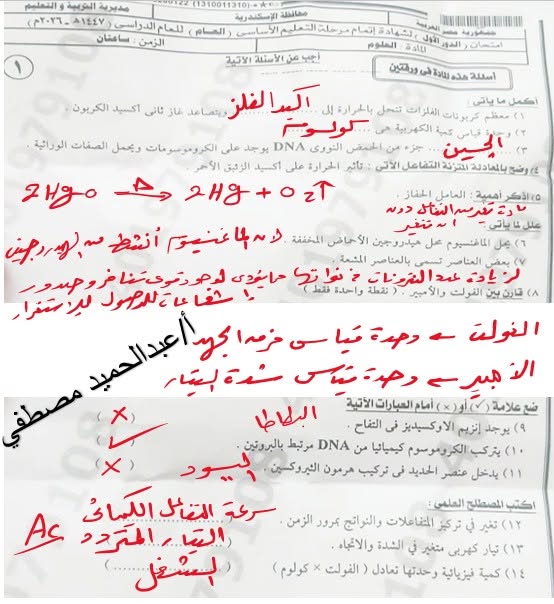 جمهورية مصر العربية
محافظة الإسكندرية
مديرية التربية و التعليم
امتحان (الدور الأول) لشهادة إتمام مرحلة التعليم الأساسى (العام) للعام الدراسى (١٤٤٧هـ - ٢٠٢٦م)
المادة: العلوم
الزمن: ساعتان
أسئلة هذه المادة فى ورقتين
أجب عن الأسئلة الآتية
١
أكمل ما يأتى:
١) معظم كربونات الفلزات تنحل بالحرارة إلى أكسيد الفلز ويتصاعد غاز ثانى أكسيد الكربون.
٢) وحدة قياس كمية الكهربية هى كولوم
٣) الجين جزء من الحمض النووى DNA يوجد على الكروموسومات ويحمل الصفات الوراثية.
٤) وضح بالمعادلة المتزنة التفاعل الآتى: تأثير الحرارة على أكسيد الزئبق الأحمر.
2HgO Δ→ 2Hg + O2↑
٥) اذكر أهمية: العامل الحفاز.
مادة تغير من التفاعل دون
ان تتغير
علل لما يأتى:
٦) يحل الماغنسيوم محل هيدروجين الأحماض المخففة.
لان الماغنسيوم أنشط من الهيدروجين
٧) بعض العناصر تسمى بالعناصر المشعة.
لزيادة عدد النيوترونات فى نواتها مما يؤدى لوجود قوى تنافر وصدور
إشعاعات للوصول للاستقرار
٨) قارن بين الفولت والأمبير. (نقطة واحدة فقط)
الفولت ← وحدة قياس فرق الجهد
الأمبير ← وحدة قياس شدة التيار
أ/عبدالحميد مصطفي
ضع علامة (✓) أو (×) أمام العبارات الآتية
٩) يوجد إنزيم الأوكسيديز فى التفاح. البطاطا (×)
١٠) يتركب الكروموسوم كيميائيا من DNA مرتبط بالبروتين. (✓)
١١) يدخل عنصر الحديد فى تركيب هرمون الثيروكسين. اليود (×)
اكتب المصطلح العلمى:
١٢) تغير فى تركيز المتفاعلات والنواتج بمرور الزمن. سرعة التفاعل الكيميائى
١٣) تيار كهربى متغير فى الشدة والاتجاه. التيار المتردد AC
١٤) كمية فيزيائية وحدتها تعادل (الفولت × كولوم) الشغل